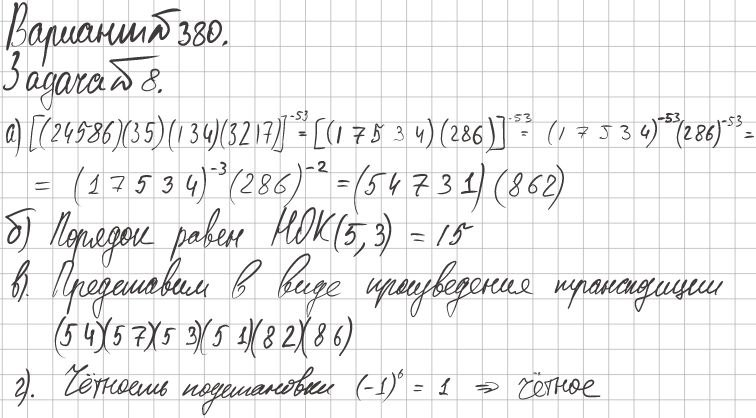 Вариант № 380.
Задача № 8.
а) [(24586)(35)(134)(3217)]^-53 = [(1 7 5 3 4)(286)]^-53 = (1 7 5 3 4)^-53 (286)^-53 =
= (1 7 5 3 4)^-3 (286)^-2 = (5 4 7 3 1)(8 6 2)
б) Порядок равен НОК(5,3) = 15
в). Представим в виде произведения транспозиции
(5 4)(5 7)(5 3)(5 1)(8 2)(8 6)
г). Чётность подстановки (-1)^6 = 1 ⇒ чётное